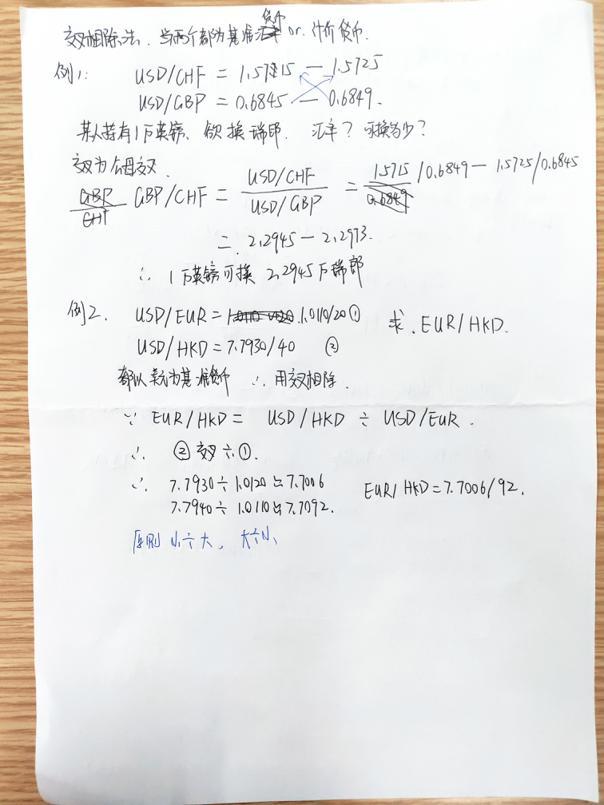 交叉相除法、当两个都为基准货币 or 计价货币.
例1: USD/CHF = 1.5715 — 1.5725
USD/GBP = 0.6845 — 0.6849.
某人持有1万英镑、欲换瑞郎. 汇率? 可换多少?
交叉为分母交叉.
GBP/CHF = USD/CHF / USD/GBP = 1.5715/0.6849 — 1.5725/0.6845
= 2.2945 — 2.2973.
∴ 1万英镑可换 2.2945万瑞郎
例2. USD/EUR = 1.0110/20 ① 求. EUR/HKD.
USD/HKD = 7.7930/40 ②
都以美元为基准货币 ∴ 用交叉相除.
∵ EUR/HKD = USD/HKD ÷ USD/EUR.
∴ ② 交叉 ÷ ①.
∴ 7.7930 ÷ 1.0120 ≈ 7.7006 EUR/HKD = 7.7006/92.
7.7940 ÷ 1.0110 ≈ 7.7092.
原则 小÷大, 大÷小